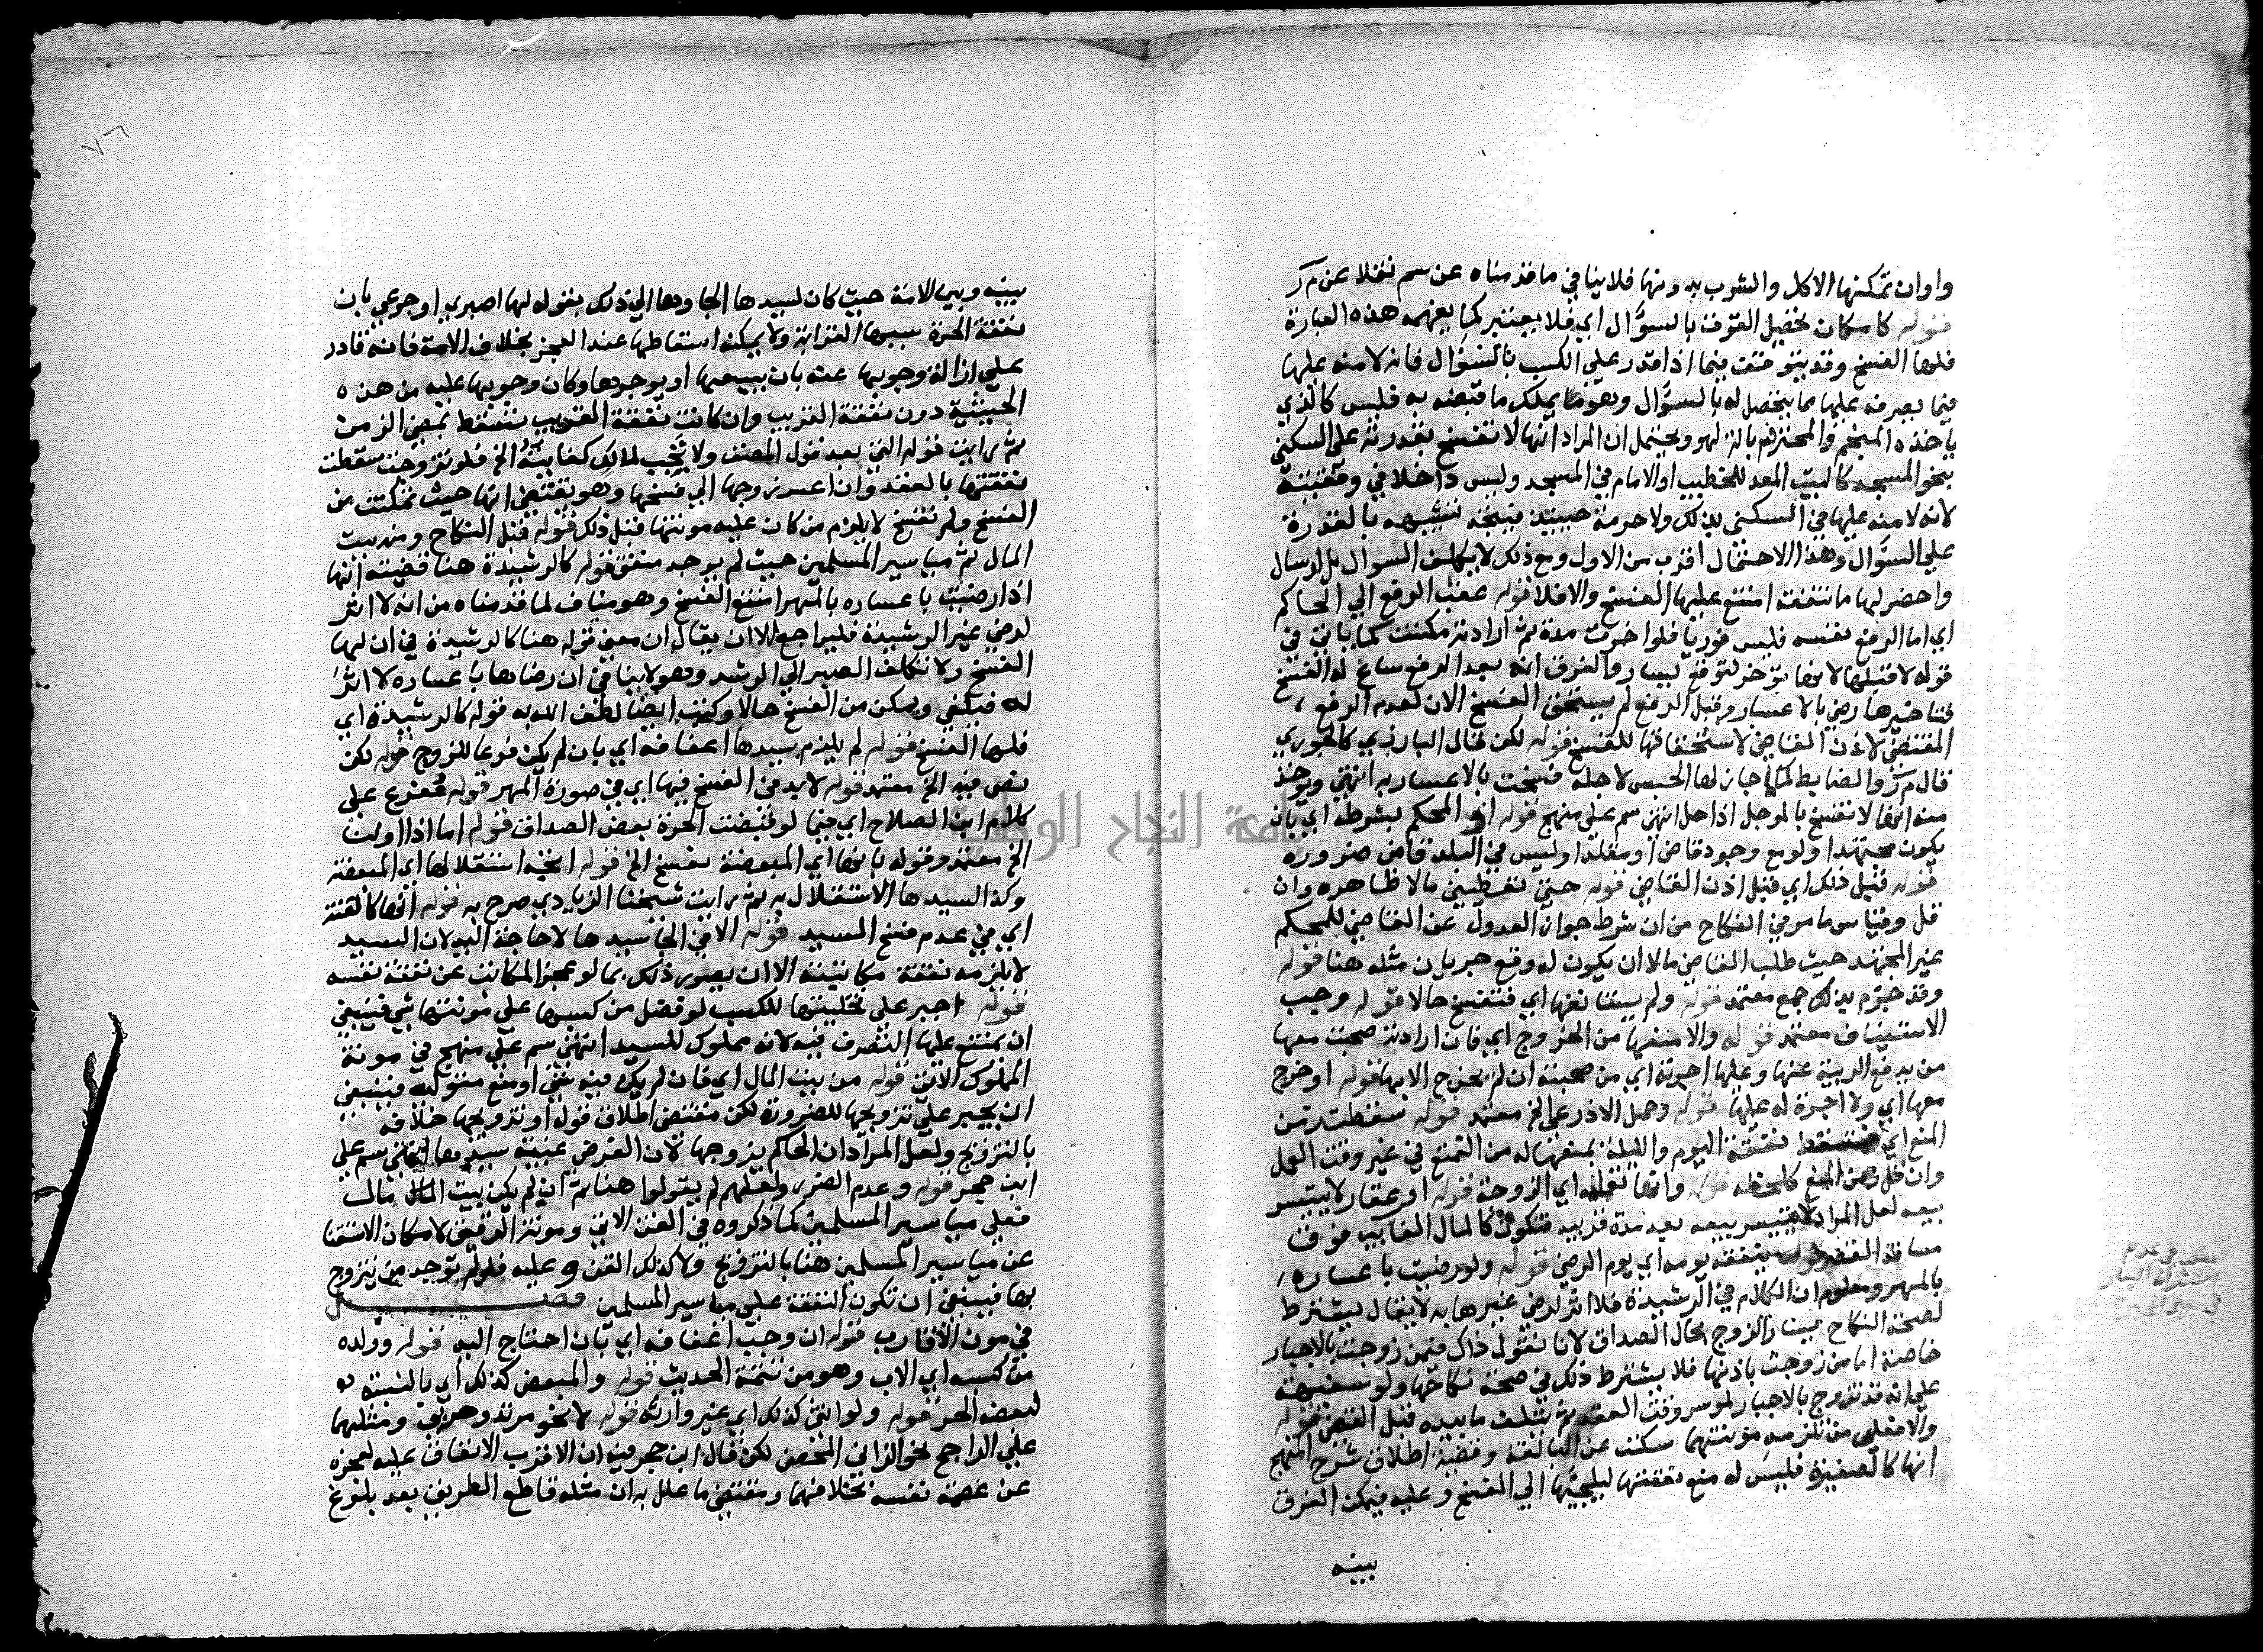 واوان تمكنها الاكل والشرب بدونها فلا ينافي ما قدمناه عن سم نقلا عن م ر
قوله كامكان تحصيل القوت بالسؤال اي فلا يعتبر كما يفهمه هذه العبارة
فلها الفسخ وقد يتوقف فيما اذا قدر على الكسب بالسؤال فانه لا منه عليها
فيما يصرفه عليها مما يتحصل له بالسؤال وهو مما يملك ما قبضه به فليس كالذي
ياخذه المنجم والمحترف بالة لهو ويحتمل ان المراد انها لا تفسخ بقدرته على السكنى
بنحو المسجد كالبيت المعد للخطيب او الامام في المسجد وليس داخلا في وقفيته
لانه لا منه عليها في السكنى بذلك ولا حرمة حينئذ فيتجه تشبيهه بالقدرة
على السؤال وهذا الاحتمال اقرب من الاول ومع ذلك لا يكلف السؤال بل لو سال
واحضر لها ما تنفقه امتنع عليها الفسخ والا فلا قوله عقب الرفع الي الحاكم
اي اما الرفع نفسه فليس فوريا فلو اخرت مدة ثم ارادته مكنت كما ياتي في
قوله لا قبلها لانها تؤخر لتوقع يسار والفرق انه بعد الرفع ساغ لها الفسخ
فتاخيرها رضي بالاعسار وقبل الرفع لم يستحق الفسخ الان لعدم الرفع
المقتضي لاذن القاضي لاستحقاقها للفسخ قوله لكن قال البارزي كالجوري
قال م ر والضابط كلما جاز لها الحبس لاجله فسخت بالاعسار به انتهى ويوخذ
منه انها لا تفسخ بالموجل اذا حل انتهى سم على منهج قوله او المحكم بشرطه اي بان
يكون مجتهدا ولو مع وجود قاض او مقلدا وليس في البلد قاض ضرورة
قوله قبل ذلك اي قبل اذن القاضي قوله حتى تعطيني مالا ظاهره وان
قل وقياس ما مر في النكاح من ان شرط جواز العدول عن القاضي للمحكم
غير المجتهد حيث طلب القاضي مالا ان يكون له وقع جريان مثله هنا قوله
وقد جزم بذلك جمع معتمد قوله ولم يستانفها اي فتفسخ حالا قوله وجب
الاستيناف معتمد قوله والا منعها من الخروج اي فان ارادته صحبت معها
من يدفع الريبة عنها وعليها اجرته اي من صحبته ان لم يخرج الا بها قوله او خرج
معها اي ولا اجرة له عليها قوله وحمل الاذرعي الخ معتمد قوله سقطت زمن
المنع اي نفقة اليوم والليلة بمنعها له من التمتع في غير وقت العمل
وان قل زمن المنع كلحظة قوله وانها تقبله اي الزوجة قوله او عقار لا يتيسر
بيعه لعل المراد لا يتيسر بيعه بعد مدة قريبة فتكون كالمال الغايب فوق
مسافة القصر قوله بنفقه يومه اي يوم الرضى قوله ولو رضيت باعساره
بالمهر ومعلوم ان الكلام في الرشيدة فلا اثر لرضى غيرها به لا يقال يشترط
لصحة النكاح يسار الزوج بحال الصداق لانا نقول ذاك فيمن زوجت بالاجبار
خاصة اما من زوجت باذنها فلا يشترط ذلك في صحة نكاحها ولو سفيهة
على انه قد تزوج بالاجبار لموسر وقت العقد ثم يتلف ما بيده قبل القبض قوله
والا فعلى من تلزمه مونتهما سكت عن البالغة وقضية اطلاق شرح المنهج
انها كالصغيرة فليس له منع نفقتها ليلجئها الي الفسخ وعليه فيمكن الفرق
بينه
مطلب في عدم
اشتراط اليسار
في غير المجبرة
٧٦
بينه وبين الامة حيث كان لسيدها الجاوها الي ذلك بقوله لها اصبري او جوعي بان
نفقة الحرة سببها القرابة ولا يمكنه اسقاطها عند العجز بخلاف الامة فانه قادر
على ازالة وجوبها عنه بان يبيعها او يوجرها وكان وجوبها عليه من هذه
الحيثية دون نفقة القريب وان كانت نفقة القريب تسقط بمضي الزمن
ثم رايت قوله الاتي بعد قول المصنف ولا تجب لمالك كفايته الخ فلو تزوجت سقطت
نفقتها بالعقد وان اعسر زوجها الي فسخها وهو يقتضي انها حيث تمكنت من
الفسخ ولم تفسخ لا يلزم من كان عليه مونتها قبل ذلك قوله قبل النكاح ومن بيت
المال ثم مياسير المسلمين حيث لم يوجد منفق قوله كالرشيدة هنا قضيته انها
اذا رضيت باعساره بالمهر امتنع الفسخ وهو مناف لما قدمناه من انه لا اثر
لرضي غير الرشيدة فليراجع الا ان يقال ان معنى قوله هنا كالرشيدة في ان لها
الفسخ ولا تكلف الصبر الي الرشد وهو لا ينافي ان رضاها باعساره لا اثر
له فيكفي ويمكن من الفسخ حالا وكتب ايضا لطف الله به قوله كالرشيدة اي
فلها الفسخ قوله لم يلزم سيدها اعفافه اي بان لم يكن فرعا للزوج قوله لكن
نص فيه الخ معتمد قوله لا بد في الفسخ فيها اي في صورة المهر قوله مفرع على
كلام ابن الصلاح اي فيما لو قبضت الحرة بعض الصداق قوله اما اذا اولت
الخ معتمد وقوله بانها اي المبعضة تفسخ الخ قوله اتجه استقلالها اي المبعضة
وكذا لسيدها الاستقلال به ثم رايت شيخنا الزيادي صرح به قوله انها كالقنة
اي في عدم فسخ السيد قوله الا في الجا سيدها لا حاجة اليه لان السيد
لا يلزمه نفقة مكاتبته الا ان يصور ذلك بما لو عجز المكاتب عن نفقة نفسه
قوله اجبر على تخليتها للكسب لو فضل من كسبها على مونتها شي فينبغي
ان يمتنع عليها التصرف فيه لانه مملوك للسيد انتهى سم على منهج في مونة
المملوك الاتي قوله من بيت المال اي فان لم يكن فيه شي او منع متوليه فينبغي
ان يجبر على تزويجها للضرورة لكن مقتضى اطلاق قوله او تزويجها خلافه
بالتزويج ولعل المراد ان الحاكم يزوجها لان الفرض غيبة سيدها انتهى سم على
ابن حجر قوله وعدم الضرر ولعلهم لم يقولوا هنا ثم ان لم يكن بيت المال مال
فعلى مياسير المسلمين كما ذكروه في القن الاتي ومونة الرقيق لامكان الاستغنا
عن مياسير المسلمين هنا بالتزويج ولا كذلك القن وعليه فلو لم توجد من يتزوج
بها فينبغي ان تكون النفقة على مياسير المسلمين فصل
في مون الاقارب قوله ان وجب اعفافه اي بان احتاج اليه قوله وولده
من كسبه اي الاب وهو من تتمة الحديث قوله والمبعض كذلك اي بالنسبة
لبعضه الحر قوله ولو انثى كذلك اي غير وارثه قوله لا نحو مرتد وحربي ومثلهما
على الراجح نحو الزاني المحصن لكن قال ابن حجر فيه ان الاقرب الانفاق عليه لعجزه
عن عصمة نفسه بخلافهما ومقتضى ما علل به ان مثله قاطع الطريق بعد بلوغ